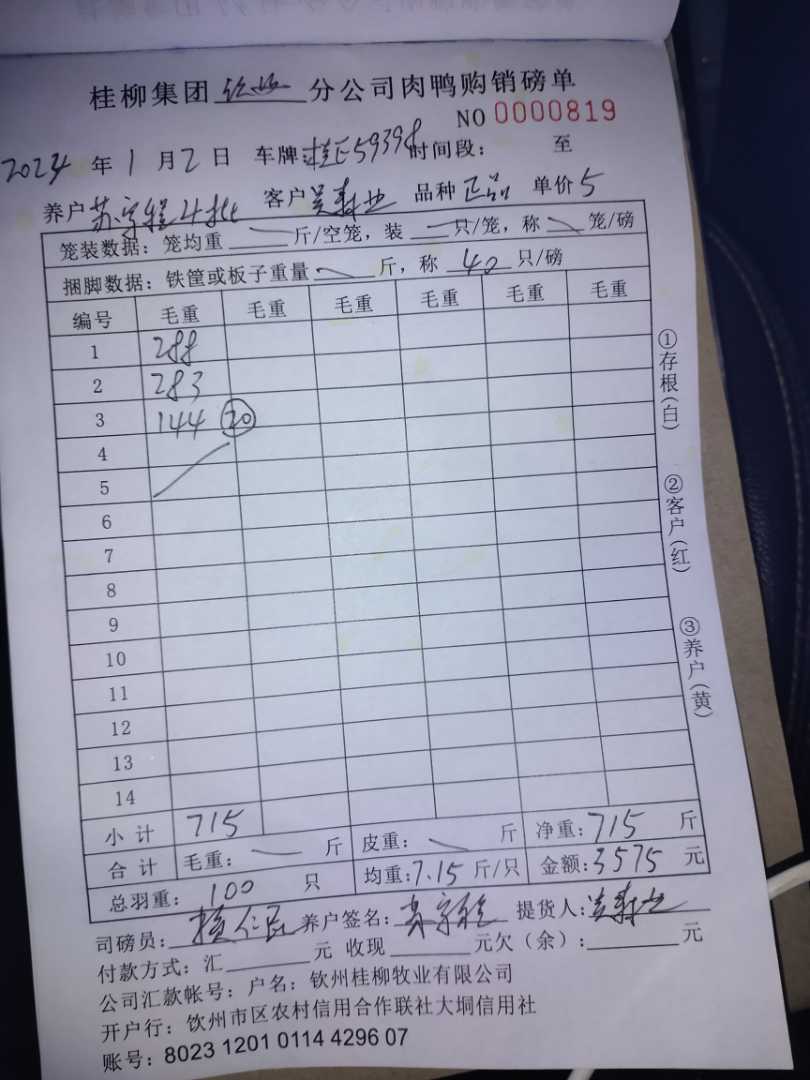 桂柳集团 钦州 分公司肉鸭购销磅单
NO 0000819
2024 年 1 月 2 日 车牌: 桂E59398 时间段: 至
养户 苏宗程 4批 客户 吴寿业 品种 正品 单价 5
笼装数据: 笼均重 斤/空笼, 装 只/笼, 称 笼/磅
捆脚数据: 铁筐或板子重量 斤, 称 40 只/磅
编号 毛重 毛重 毛重 毛重 毛重 毛重
1 288
2 283
3 144 20
4
5
6
7
8
9
10
11
12
13
14
小计 715
合计 毛重: 斤 皮重: 斤 净重: 715 斤
总羽重: 100 只 均重: 7.15 斤/只 金额: 3575 元
司磅员: 养户签名: 提货人: 吴寿业
付款方式: 汇 元 收现 元欠(余): 元
公司汇款帐号: 户名: 钦州桂柳牧业有限公司
开户行: 钦州市区农村信用合作联社大垌信用社
账号: 8023 1201 0114 4296 07
①存根(白)
②客户(红)
③养户(黄)